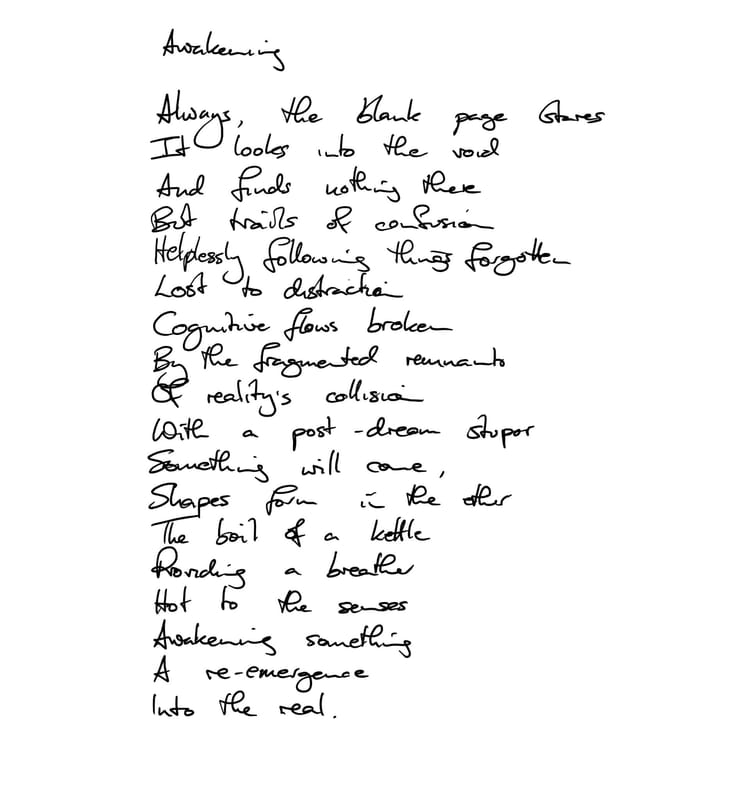 Awakening
Always, the blank page stares
It looks into the void
And finds nothing there
But trails of confusion
Helplessly following things forgotten
Lost to distraction
Cognitive flows broken
By the fragmented remnants
Of reality's collision
With a post-dream stupor
Something will come,
Shapes form in the other
The boil of a kettle
Providing a breathe
Hot to the senses
Awakening something
A re-emergence
Into the real.